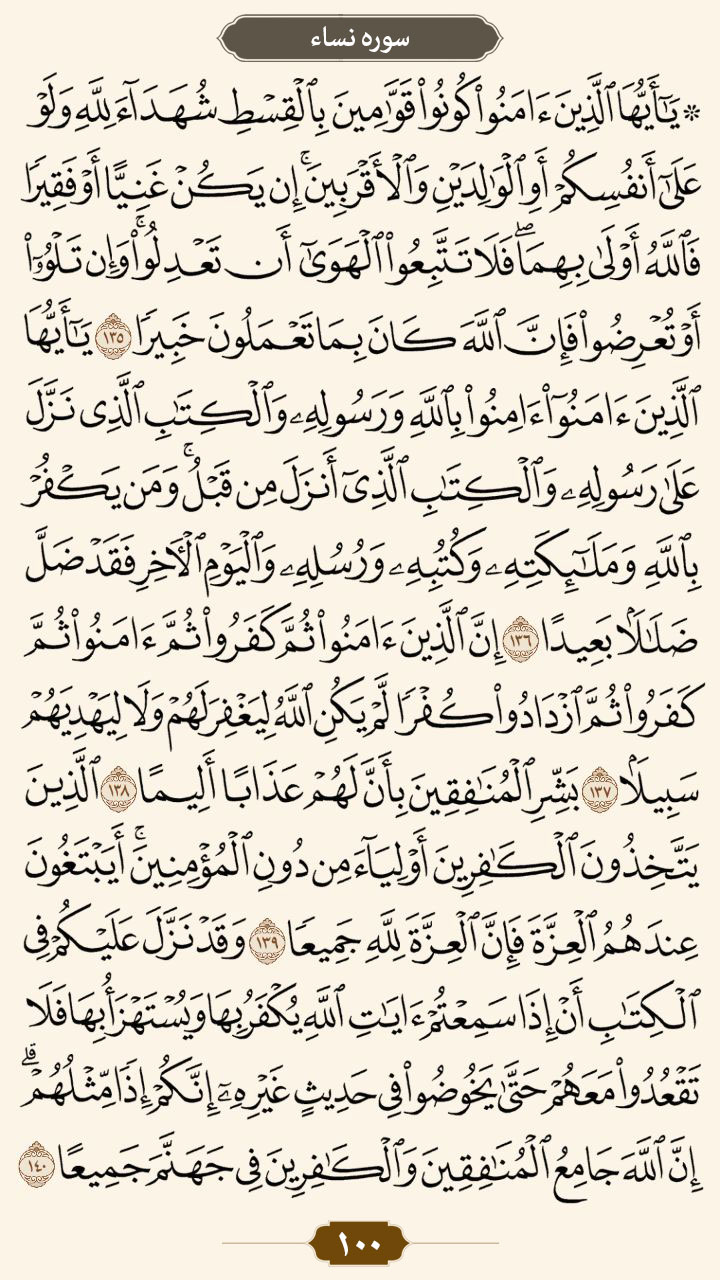 سوره نساء
۞ يَـٰٓأَيُّهَا ٱلَّذِينَ ءَامَنُوا۟ كُونُوا۟ قَوَّٰمِينَ بِٱلْقِسْطِ شُهَدَآءَ لِلَّهِ وَلَوْ
عَلَىٰٓ أَنفُسِكُمْ أَوِ ٱلْوَٰلِدَيْنِ وَٱلْأَقْرَبِينَ ۚ إِن يَكُنْ غَنِيًّا أَوْ فَقِيرًا
فَٱللَّهُ أَوْلَىٰ بِهِمَا ۖ فَلَا تَتَّبِعُوا۟ ٱلْهَوَىٰٓ أَن تَعْدِلُوا۟ ۚ وَإِن تَلْوُۥٓا۟
أَوْ تُعْرِضُوا۟ فَإِنَّ ٱللَّهَ كَانَ بِمَا تَعْمَلُونَ خَبِيرًا ١٣٥ يَـٰٓأَيُّهَا
ٱلَّذِينَ ءَامَنُوٓا۟ ءَامِنُوا۟ بِٱللَّهِ وَرَسُولِهِۦ وَٱلْكِتَـٰبِ ٱلَّذِى نَزَّلَ
عَلَىٰ رَسُولِهِۦ وَٱلْكِتَـٰبِ ٱلَّذِىٓ أَنزَلَ مِن قَبْلُ ۚ وَمَن يَكْفُرْ
بِٱللَّهِ وَمَلَـٰٓئِكَتِهِۦ وَكُتُبِهِۦ وَرُسُلِهِۦ وَٱلْيَوْمِ ٱلْـَٔاخِرِ فَقَدْ ضَلَّ
ضَلَـٰلًۢا بَعِيدًا ١٣٦ إِنَّ ٱلَّذِينَ ءَامَنُوا۟ ثُمَّ كَفَرُوا۟ ثُمَّ ءَامَنُوا۟ ثُمَّ
كَفَرُوا۟ ثُمَّ ٱزْدَادُوا۟ كُفْرًا لَّمْ يَكُنِ ٱللَّهُ لِيَغْفِرَ لَهُمْ وَلَا لِيَهْدِيَهُمْ
سَبِيلًۢا ١٣٧ بَشِّرِ ٱلْمُنَـٰفِقِينَ بِأَنَّ لَهُمْ عَذَابًا أَلِيمًا ١٣٨ ٱلَّذِينَ
يَتَّخِذُونَ ٱلْكَـٰفِرِينَ أَوْلِيَآءَ مِن دُونِ ٱلْمُؤْمِنِينَ ۚ أَيَبْتَغُونَ
عِندَهُمُ ٱلْعِزَّةَ فَإِنَّ ٱلْعِزَّةَ لِلَّهِ جَمِيعًا ١٣٩ وَقَدْ نَزَّلَ عَلَيْكُمْ فِى
ٱلْكِتَـٰبِ أَنْ إِذَا سَمِعْتُمْ ءَايَـٰتِ ٱللَّهِ يُكْفَرُ بِهَا وَيُسْتَهْزَأُ بِهَا فَلَا
تَقْعُدُوا۟ مَعَهُمْ حَتَّىٰ يَخُوضُوا۟ فِى حَدِيثٍ غَيْرِهِۦٓ ۚ إِنَّكُمْ إِذًا مِّثْلُهُمْ ۗ
إِنَّ ٱللَّهَ جَامِعُ ٱلْمُنَـٰفِقِينَ وَٱلْكَـٰفِرِينَ فِى جَهَنَّمَ جَمِيعًا ١٤٠
١٠٠